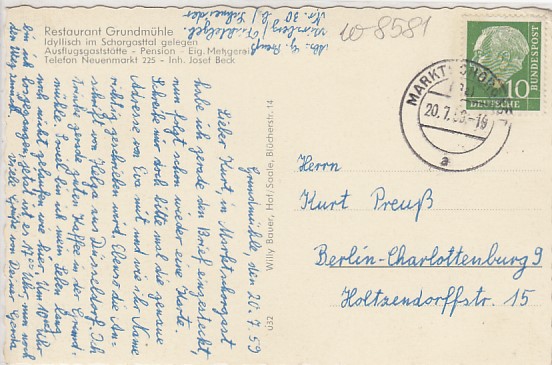 Restaurant Grundmühle
Idyllisch im Schorgasttal gelegen
Ausflugsgaststätte - Pension - Eig. Metzgerei
Telefon Neuenmarkt 225 - Inh. Josef Beck
Abs. G. Preuß
Nürnberg
Nr. 30 b/ Schneider
10 8581
MARKTSCHORGAST
20.7.59.-16
a
10
DEUTSCHE
BUNDESPOST
Grundmühle, den 20.7.59
Lieber Kurt, in Marktschorgast
habe ich gerade den Brief eingesteckt,
nun folgt schon wieder eine Karte.
Schreib mir doch bitte mal die genaue
Adresse von Eva mit und wie ihr Name
richtig geschrieben wird. Ebenso die An-
schrift von Helga aus Düsseldorf. Ich
trinke gerade guten Kaffee in der Grund-
mühle. Soviel bin ich mein Leben lang
noch nicht gelaufen wie hier. Um 10 Uhr
bin ich losgegangen, jetzt ist es 17 Uhr, nun noch
den Weg zurück. Viele Grüße von Deine Gerda
Willy Bauer, Hof/Saale, Blücherstr. 14
U32
Herrn
Kurt Preuß
Berlin-Charlottenburg 9
Holtzendorffstr. 15